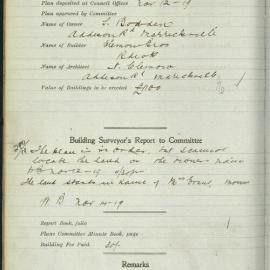 Plan deposited at Council Offices Nov 12-19
Plan approved by Committee
Name of Owner S. Bodden
Addison Rd Marrickville
Name of Builder Clemow Bros
Name of Architect Clemow
Addison Rd Marrickville
Value of Buildings to be erected £100
Building Surveyor's Report to Committee
The plan is in order, but I cannot
locate the land on the owners name
The land stands in name of Mrs
A B Nov 14-19
Report Book, folio
Please Committee Minute Book, page
Building Fee Paid 20/-
Remarks